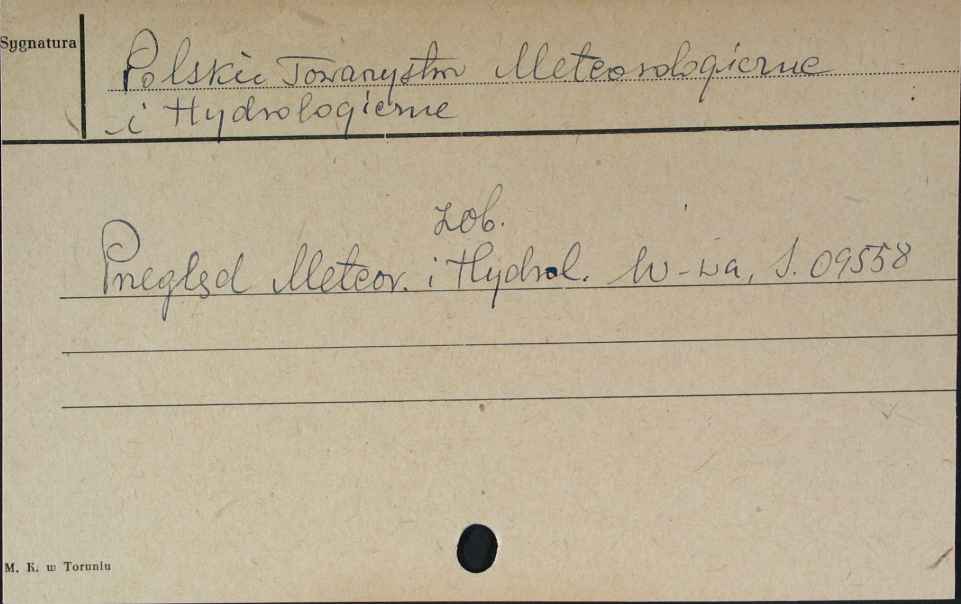 Sygnatura
Polskie Towarzystwo Meteorologiczne
i Hydrologiczne
zob.
Przegląd Meteor. i Hydrol. W-wa, S. 09558
M. K. w Toruniu